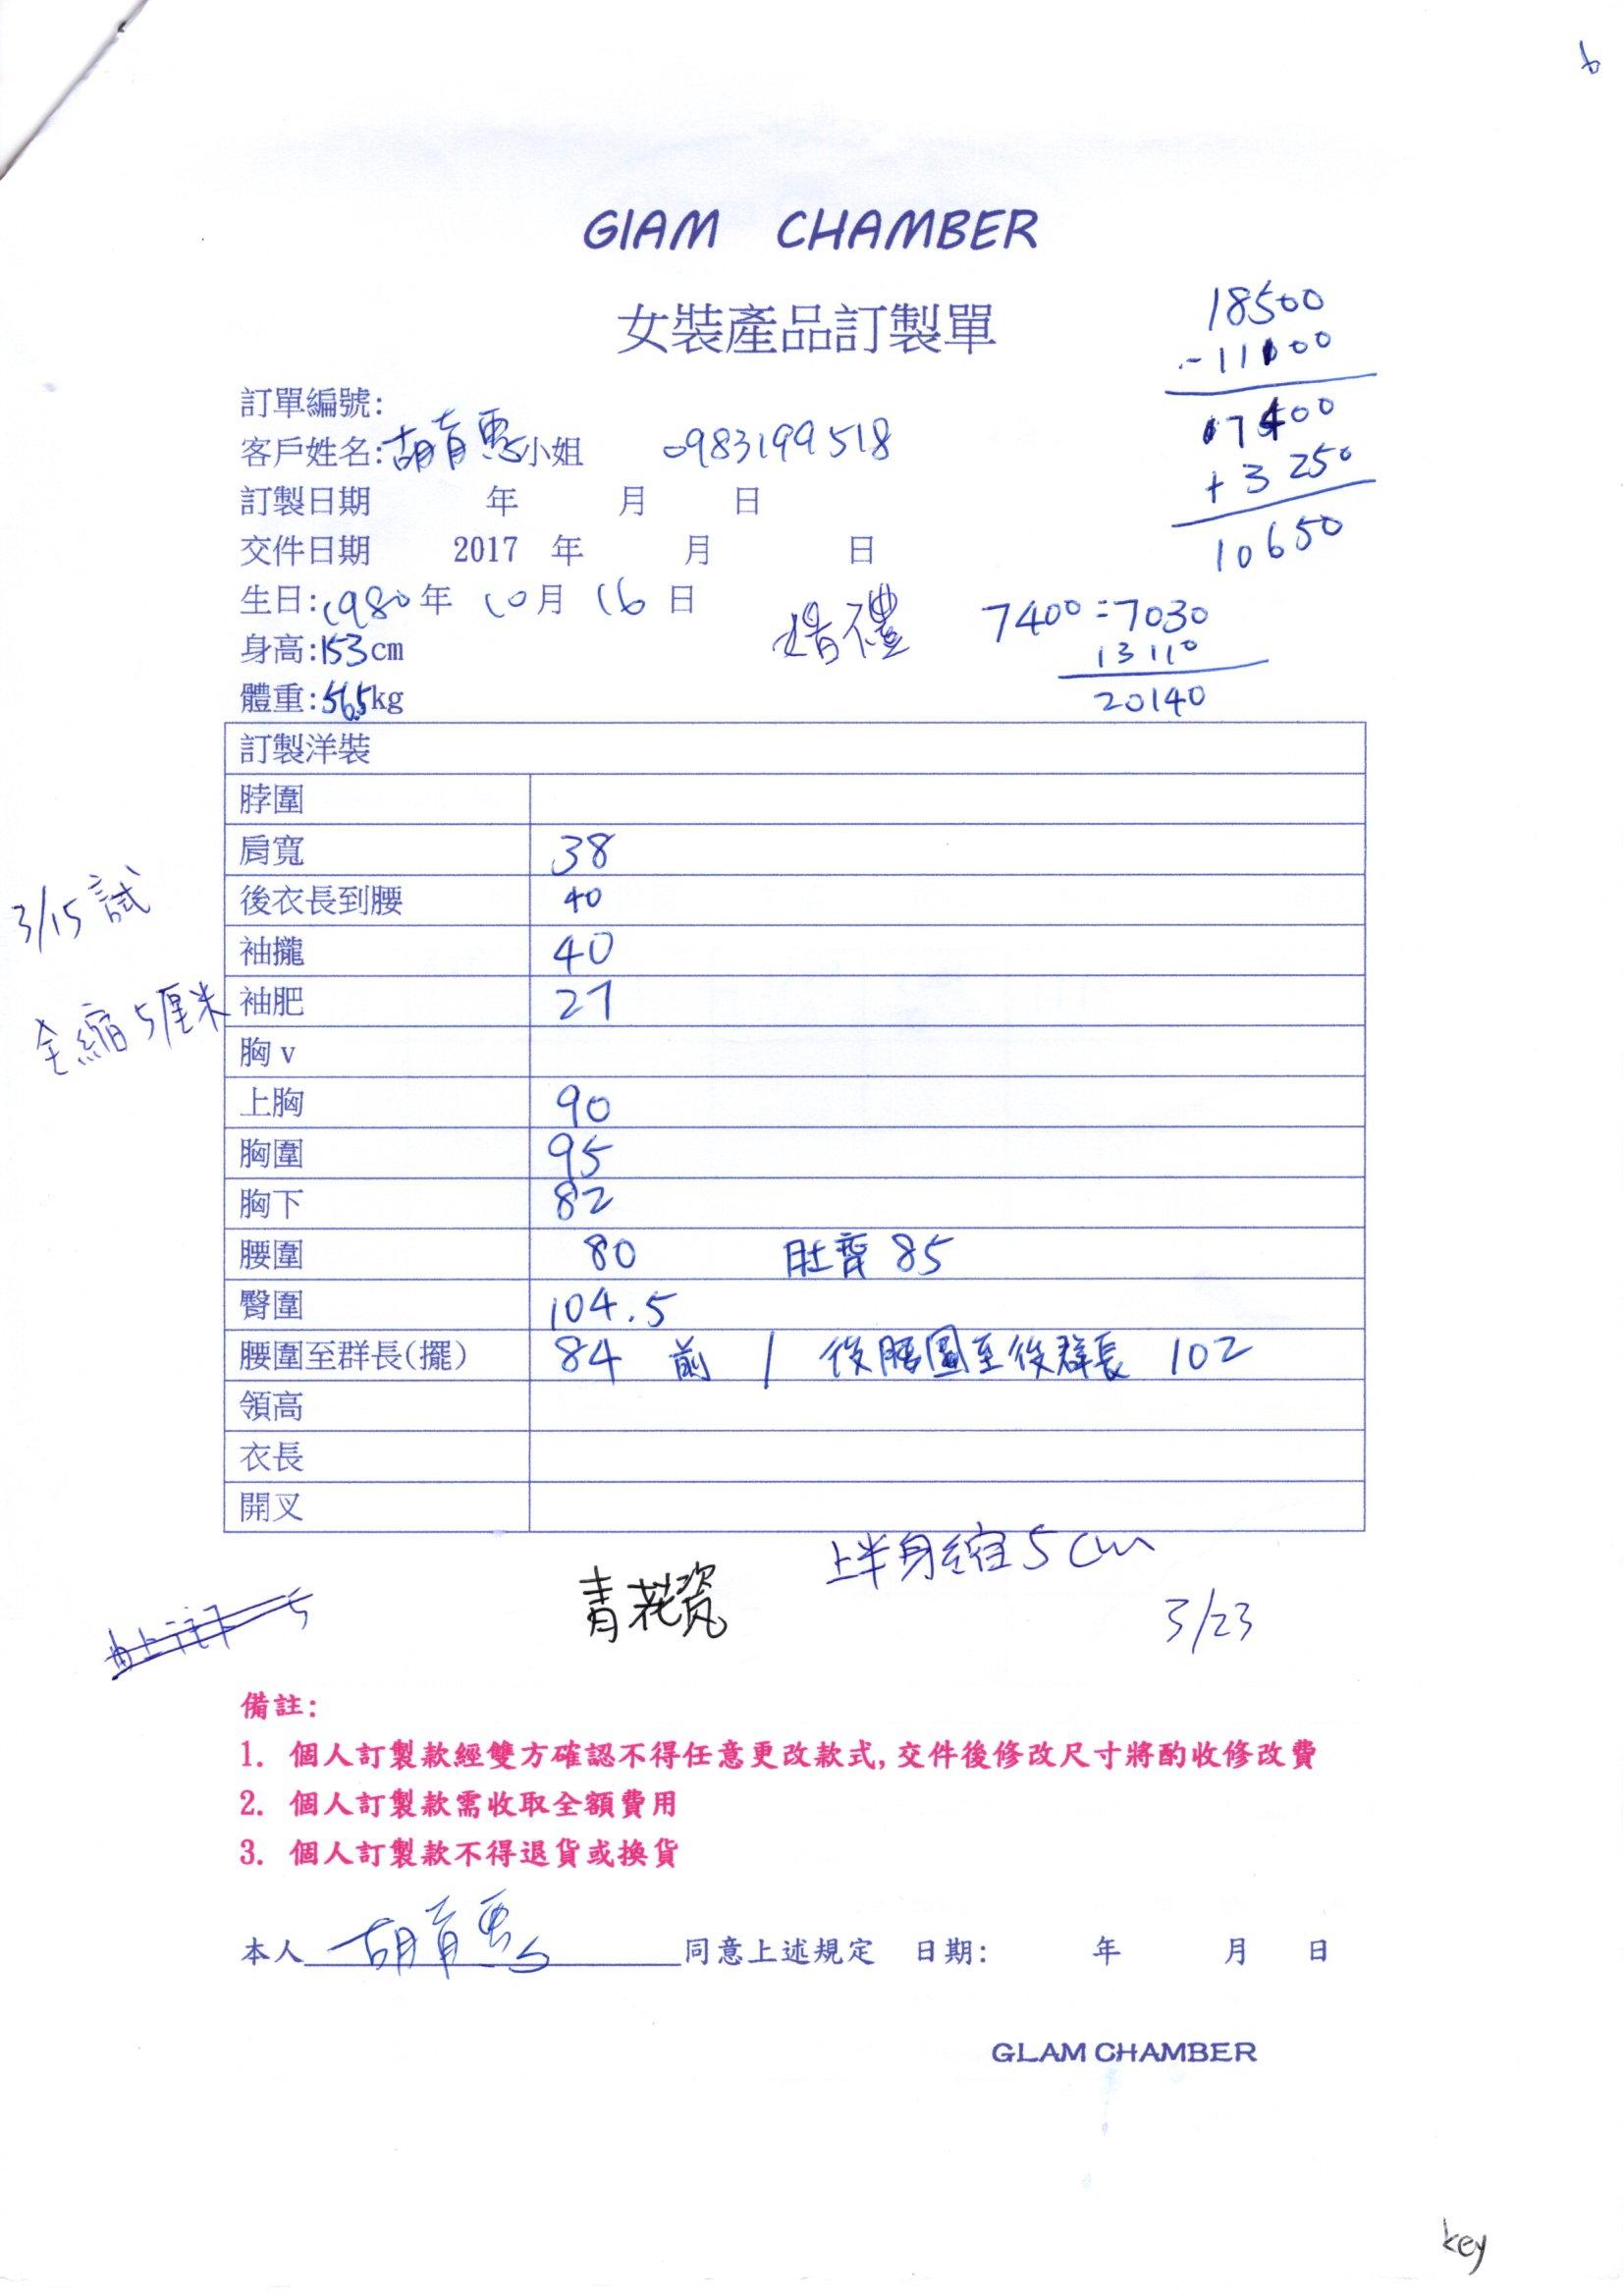 6
GIAM CHAMBER
女裝產品訂製單
18500
-11100
7400
+3250
10650
訂單編號:
客戶姓名:胡育惠小姐 0983199518
訂製日期 年 月 日
交件日期 2017 年 月 日
生日:1980年 10月 16日
婚禮
7400=7030
13110
20140
身高:153cm
體重:56.5kg
訂製洋裝
脖圍
肩寬 38
後衣長到腰 40
3/15試
袖攏 40
袖肥 27
全縮5厘米
胸v
上胸 90
胸圍 95
胸下 82
腰圍 80 肚臍 85
臀圍 104.5
腰圍至群長(擺) 84 前 / 後腰圍至後群長 102
領高
衣長
開叉
上半身縮5cm
青花瓷
3/23
備註:
1. 個人訂製款經雙方確認不得任意更改款式,交件後修改尺寸將酌收修改費
2. 個人訂製款需收取全額費用
3. 個人訂製款不得退貨或換貨
本人 胡育惠 同意上述規定 日期: 年 月 日
GLAM CHAMBER
key